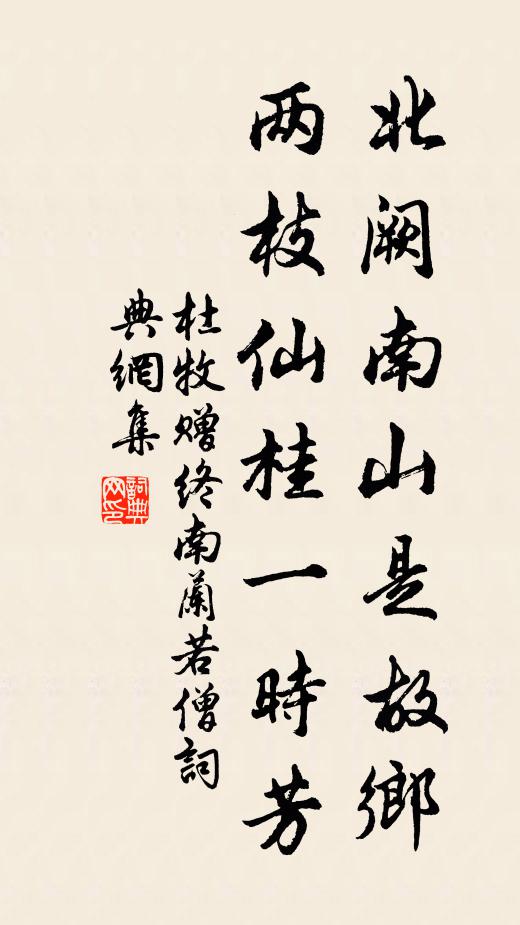 北阙南山是故鄉
两枝仙桂一時芳
杜牧赠终南蘭若僧詞
典網集
詞典
网印